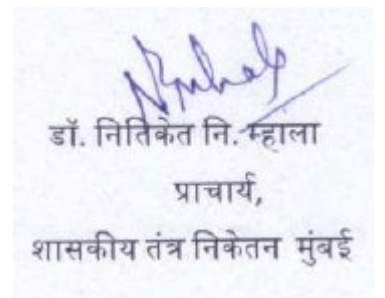 डॉ. नितिकेत नि. म्हाला
प्राचार्य,
शासकीय तंत्र निकेतन मुंबई